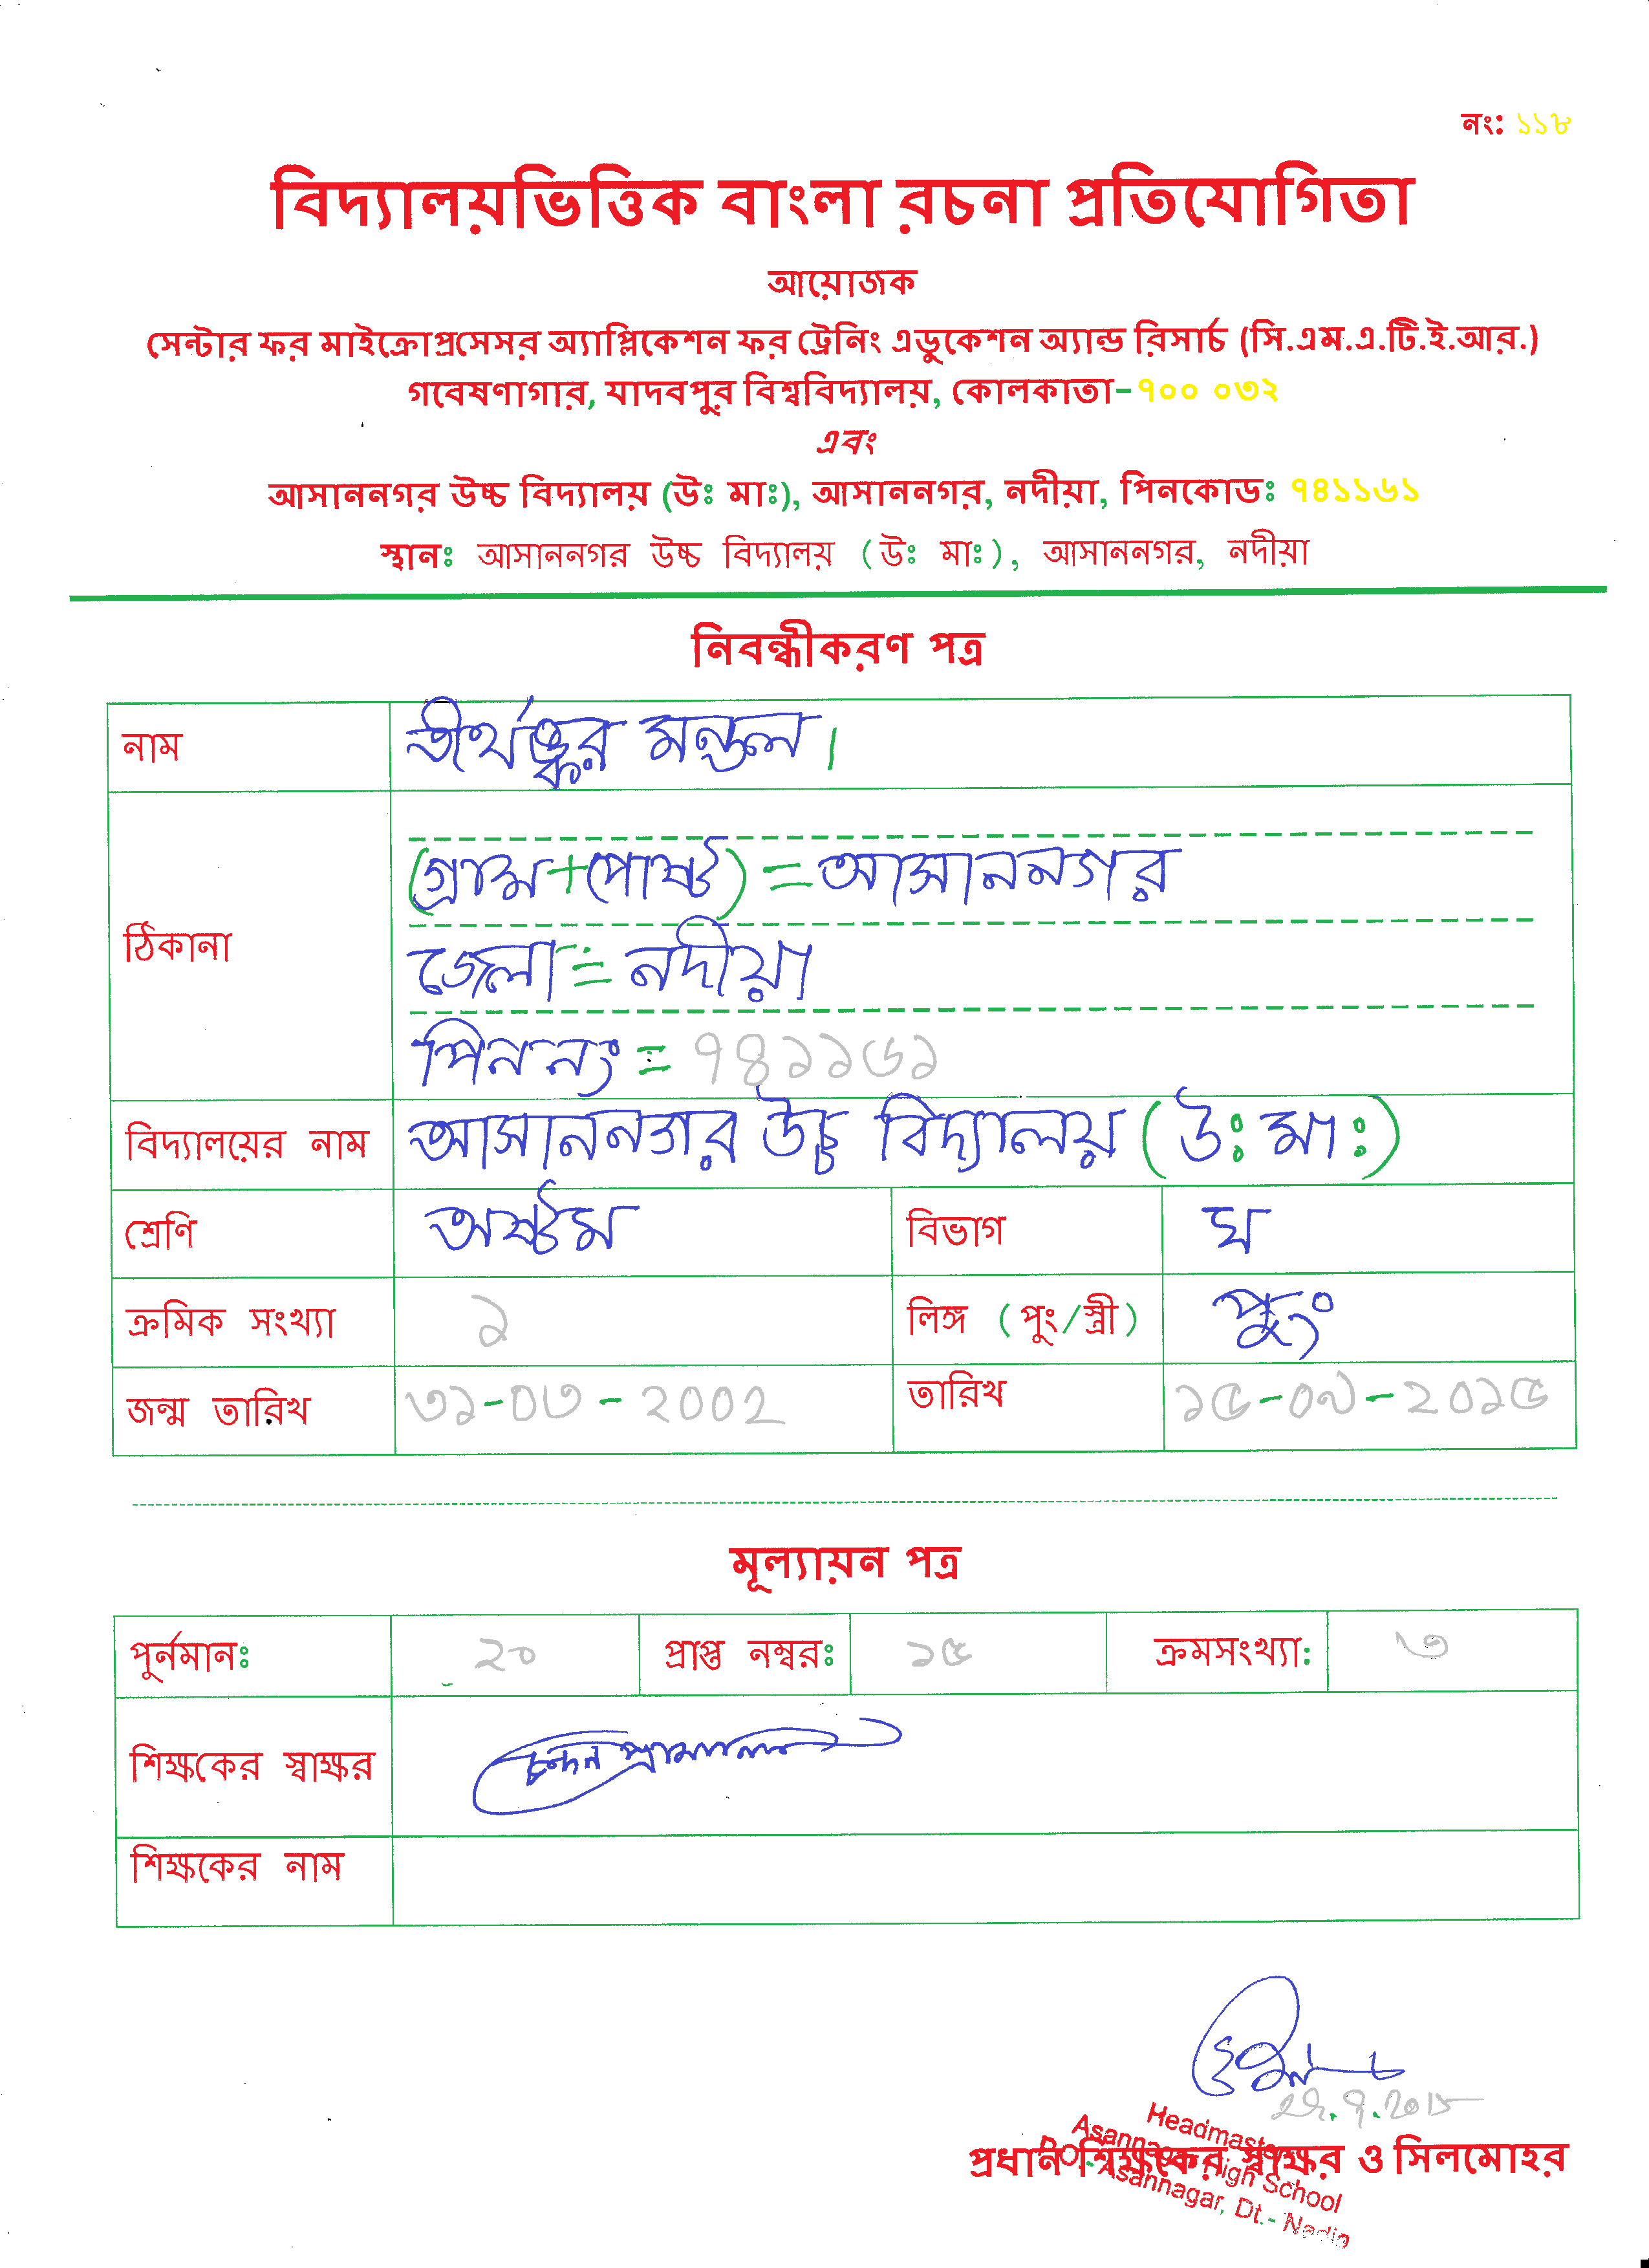 নং: ১১৮
বিদ্যালয়ভিত্তিক বাংলা রচনা প্রতিযোগিতা
আয়োজক
সেন্টার ফর মাইক্রোপ্রসেসর অ্যাপ্লিকেশন ফর ট্রেনিং এডুকেশন অ্যান্ড রিসার্চ (সি.এম.এ.টি.ই.আর.)
গবেষণাগার, যাদবপুর বিশ্ববিদ্যালয়, কোলকাতা-৭০০ ০৩২
এবং
আসাননগর উচ্চ বিদ্যালয় (উঃ মাঃ), আসাননগর, নদীয়া, পিনকোডঃ ৭৪১১৬১
স্থানঃ আসাননগর উচ্চ বিদ্যালয় (উঃ মাঃ), আসাননগর, নদীয়া
নিবন্ধীকরণ পত্র
নাম তীর্থঙ্কর মন্ডল।
ঠিকানা (গ্রাম+পোষ্ট) = আসাননগর
জেলা = নদীয়া
পিন নং = ৭৪১১৬১
বিদ্যালয়ের নাম আসাননগর উচ্চ বিদ্যালয় (উঃ মাঃ)
শ্রেণি অষ্টম বিভাগ ঘ
ক্রমিক সংখ্যা ১ লিঙ্গ (পুং/স্ত্রী) পুং
জন্ম তারিখ ৩১-০৩-2002 তারিখ ১৫-০৯-২০১৫
মূল্যায়ন পত্র
পুর্নমানঃ ২০ প্রাপ্ত নম্বরঃ ১৫ ক্রমসংখ্যা: ৩
শিক্ষকের স্বাক্ষর চন্দন প্রামানিক
শিক্ষকের নাম
Headmaster
Asannagar High School
প্রধান শিক্ষকের স্বাক্ষর ও সিলমোহর
P.O.- Asannagar, Dt.- Nadia